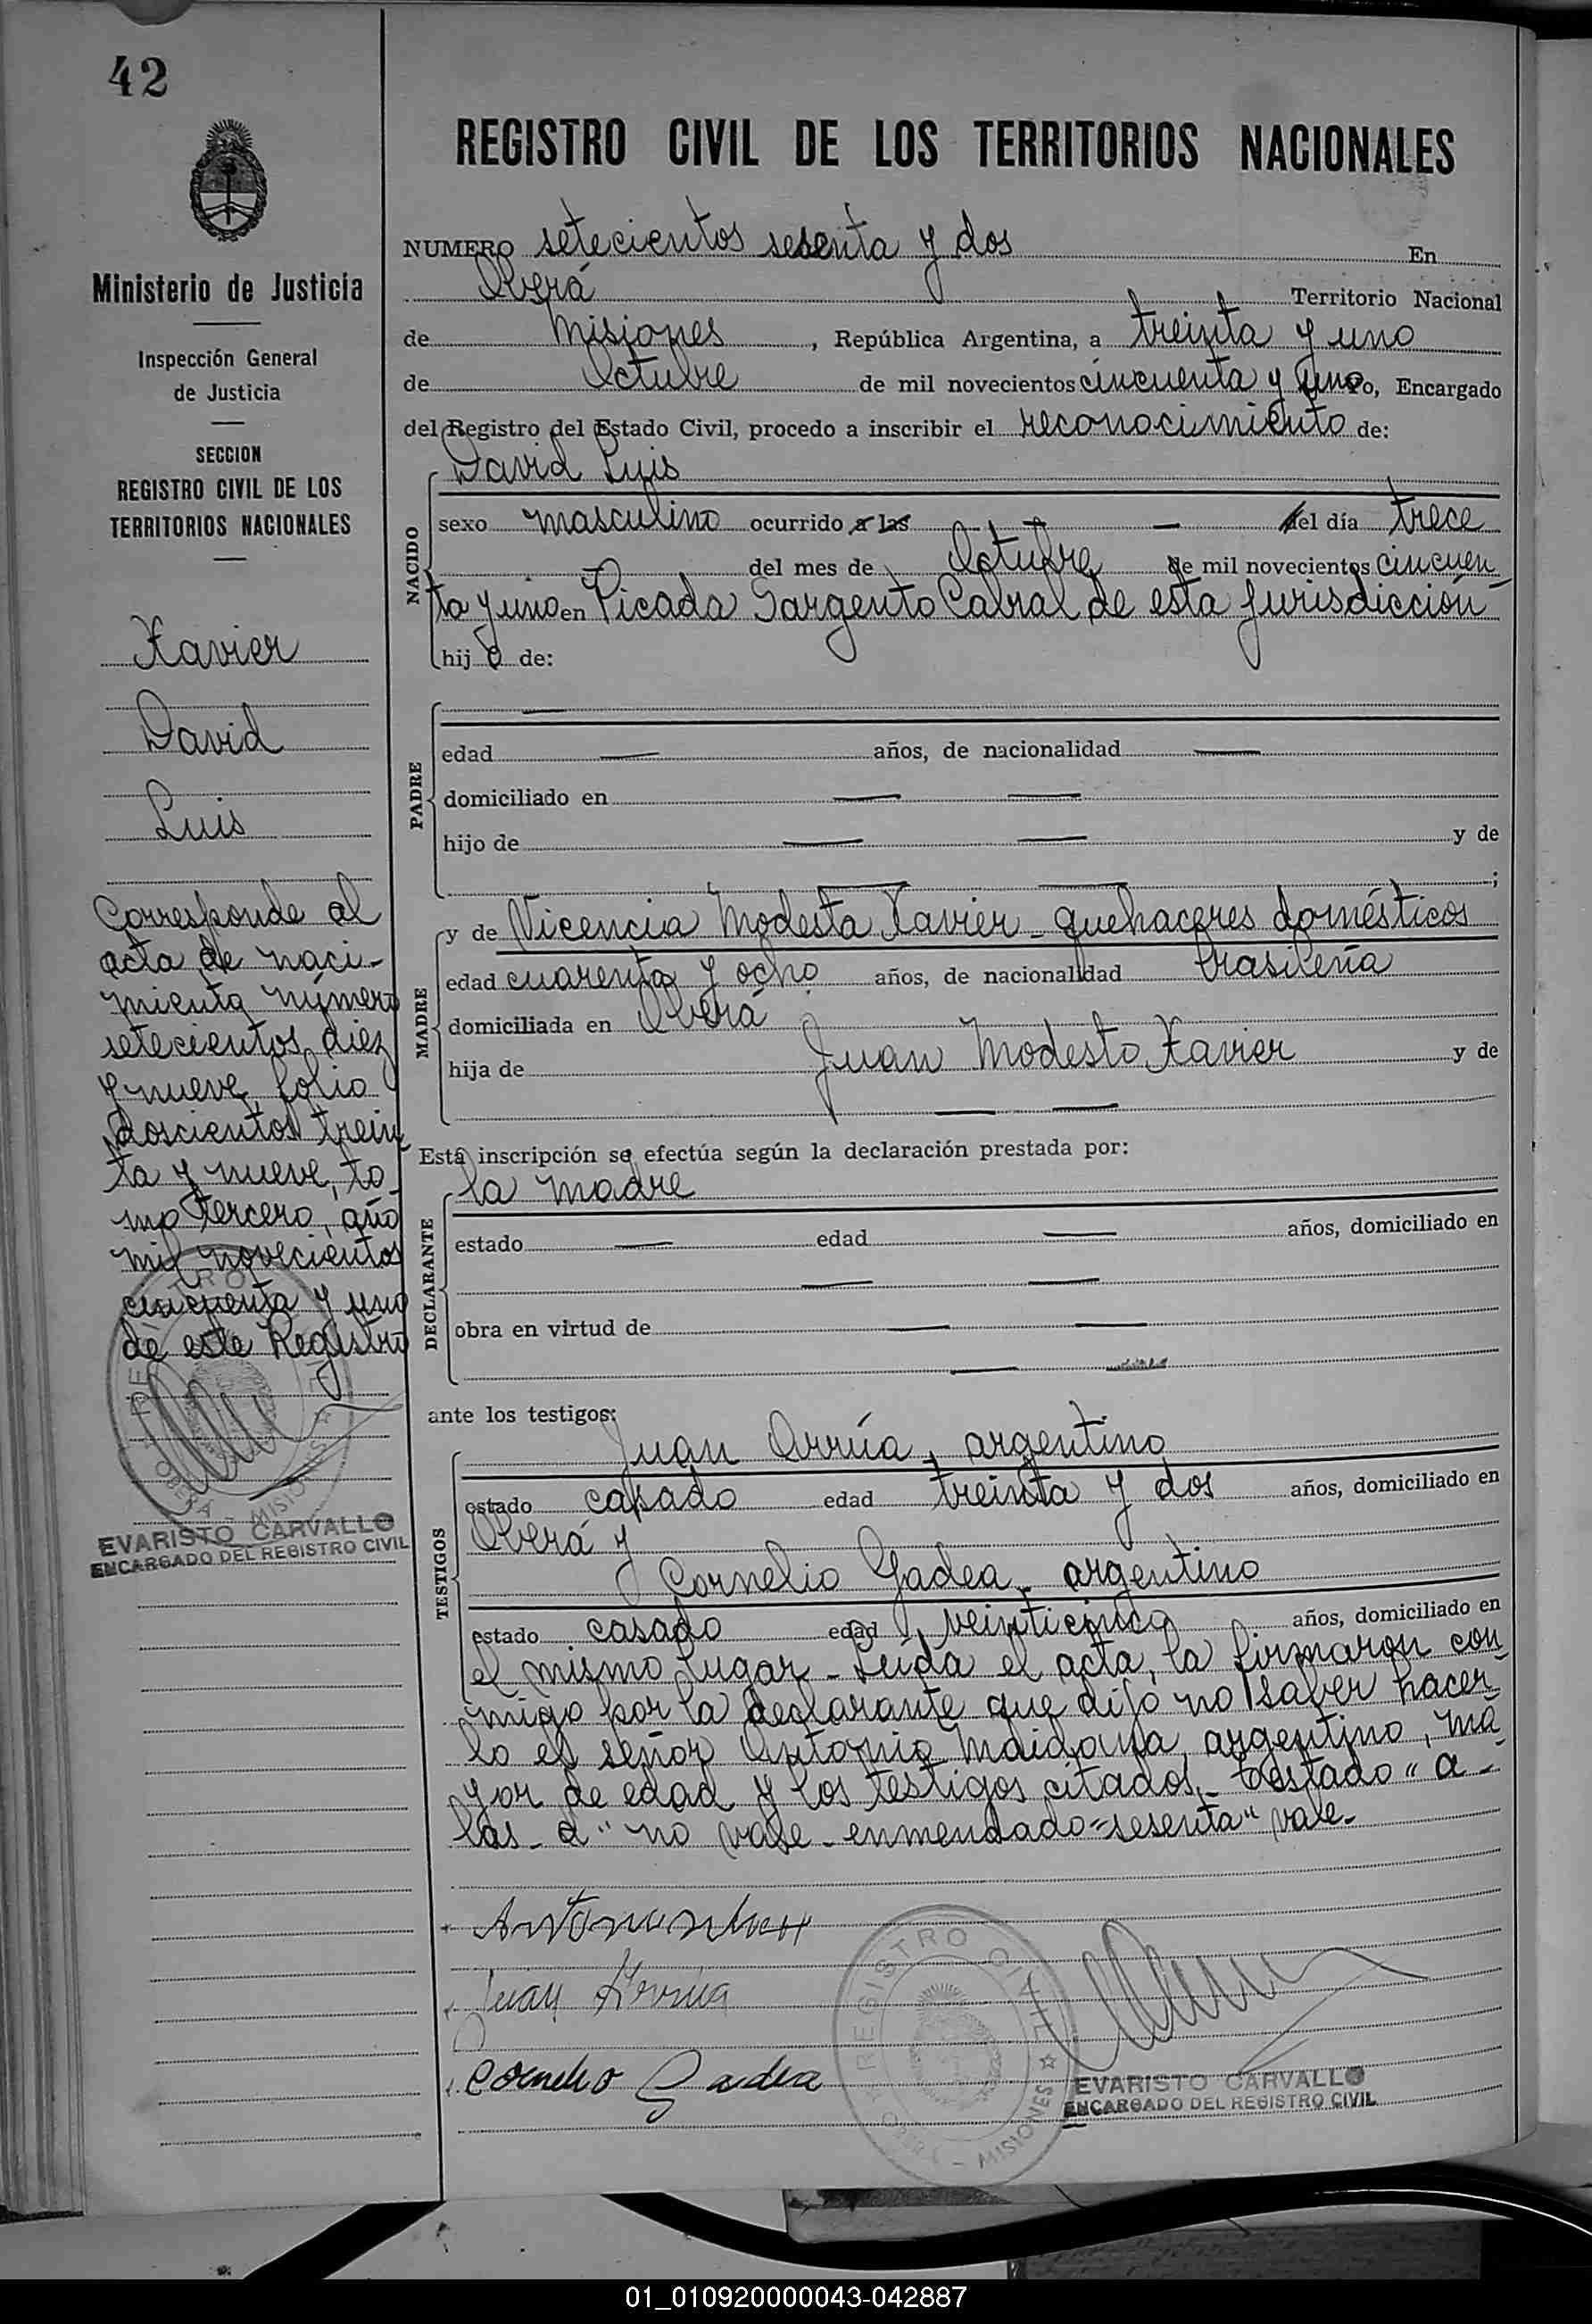 42
Ministerio de Justicia
Inspección General
de Justicia
SECCION
REGISTRO CIVIL DE LOS
TERRITORIOS NACIONALES
Xavier
David
Luis
Corresponde al
acta de naci-
miento número
setecientos diez
y nueve, folio
doscientos trein
ta y nueve, to-
mo tercero, año
mil novecientos
cincuenta y uno
de este Registro
EVARISTO CARVALLO
ENCARGADO DEL REGISTRO CIVIL
REGISTRO CIVIL DE LOS TERRITORIOS NACIONALES
NUMERO setecientos sesenta y dos En
Oberá Territorio Nacional
de Misiones, República Argentina, a treinta y uno
de Octubre de mil novecientos cincuenta y uno yo, Encargado
del Registro del Estado Civil, procedo a inscribir el reconocimiento de:
NACIDO
David Luis
sexo masculino ocurrido a las — — del día trece
— del mes de Octubre de mil novecientos cincuen-
ta y uno en Picada Sargento Cabral de esta jurisdicción
hijo de:
PADRE
—
edad — años, de nacionalidad —
domiciliado en — —
hijo de — — y de
— — ;
MADRE
y de Vicencia Modesta Xavier - quehaceres domésticos
edad cuarenta y ocho años, de nacionalidad brasileña
domiciliada en Oberá
hija de Juan Modesto Xavier y de
— —
Esta inscripción se efectúa según la declaración prestada por:
DECLARANTE
la madre
estado — edad — años, domiciliado en
— —
obra en virtud de — —
— —
ante los testigos:
TESTIGOS
Juan Arrúa, argentino
estado casado edad treinta y dos años, domiciliado en
Oberá y
Cornelio Gadea, argentino
estado casado edad veinticinco años, domiciliado en
el mismo lugar - Leída el acta, la firmaron con
migo por la declarante que dijo no saber hacer-
lo el señor Antonio Maidana, argentino, ma
yor de edad y los testigos citados - testado "a -
las - d" no vale - enmendado = "sesenta" vale -
Juan Arrúa
Cornelio Gadea
REGISTRO CIVIL
OBERÁ - MISIONES
EVARISTO CARVALLO
ENCARGADO DEL REGISTRO CIVIL
01_010920000043-042887